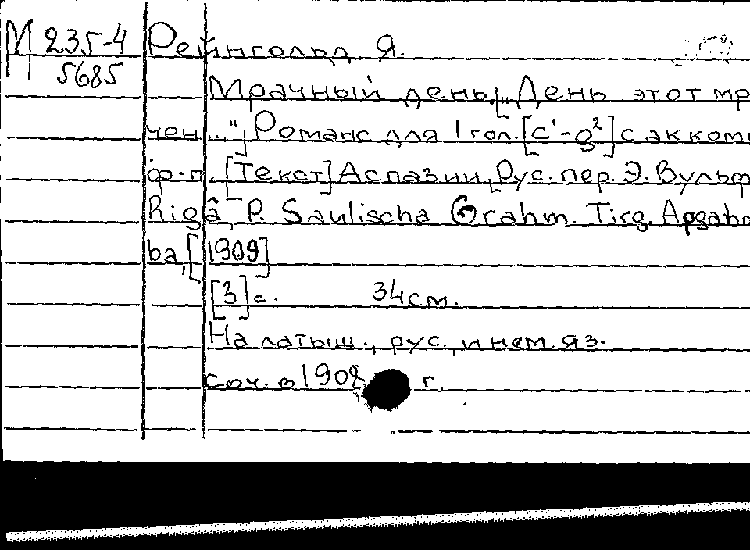 М 235-4 Рейнгольд Я.
5685
Мрачный день. ["День этот мр
чен..."] Романс для 1 гол. [c¹-g²] с акком
ф-п. [Текст] Аспазии, Рус. пер. Э. Вульф
Rigâ, P. Saulischa Grahm. Tirg. Apgahd
ba, [1909]
[3] с. 34 см.
На латыш., рус. и нем. яз.
соч. в 1908 г.